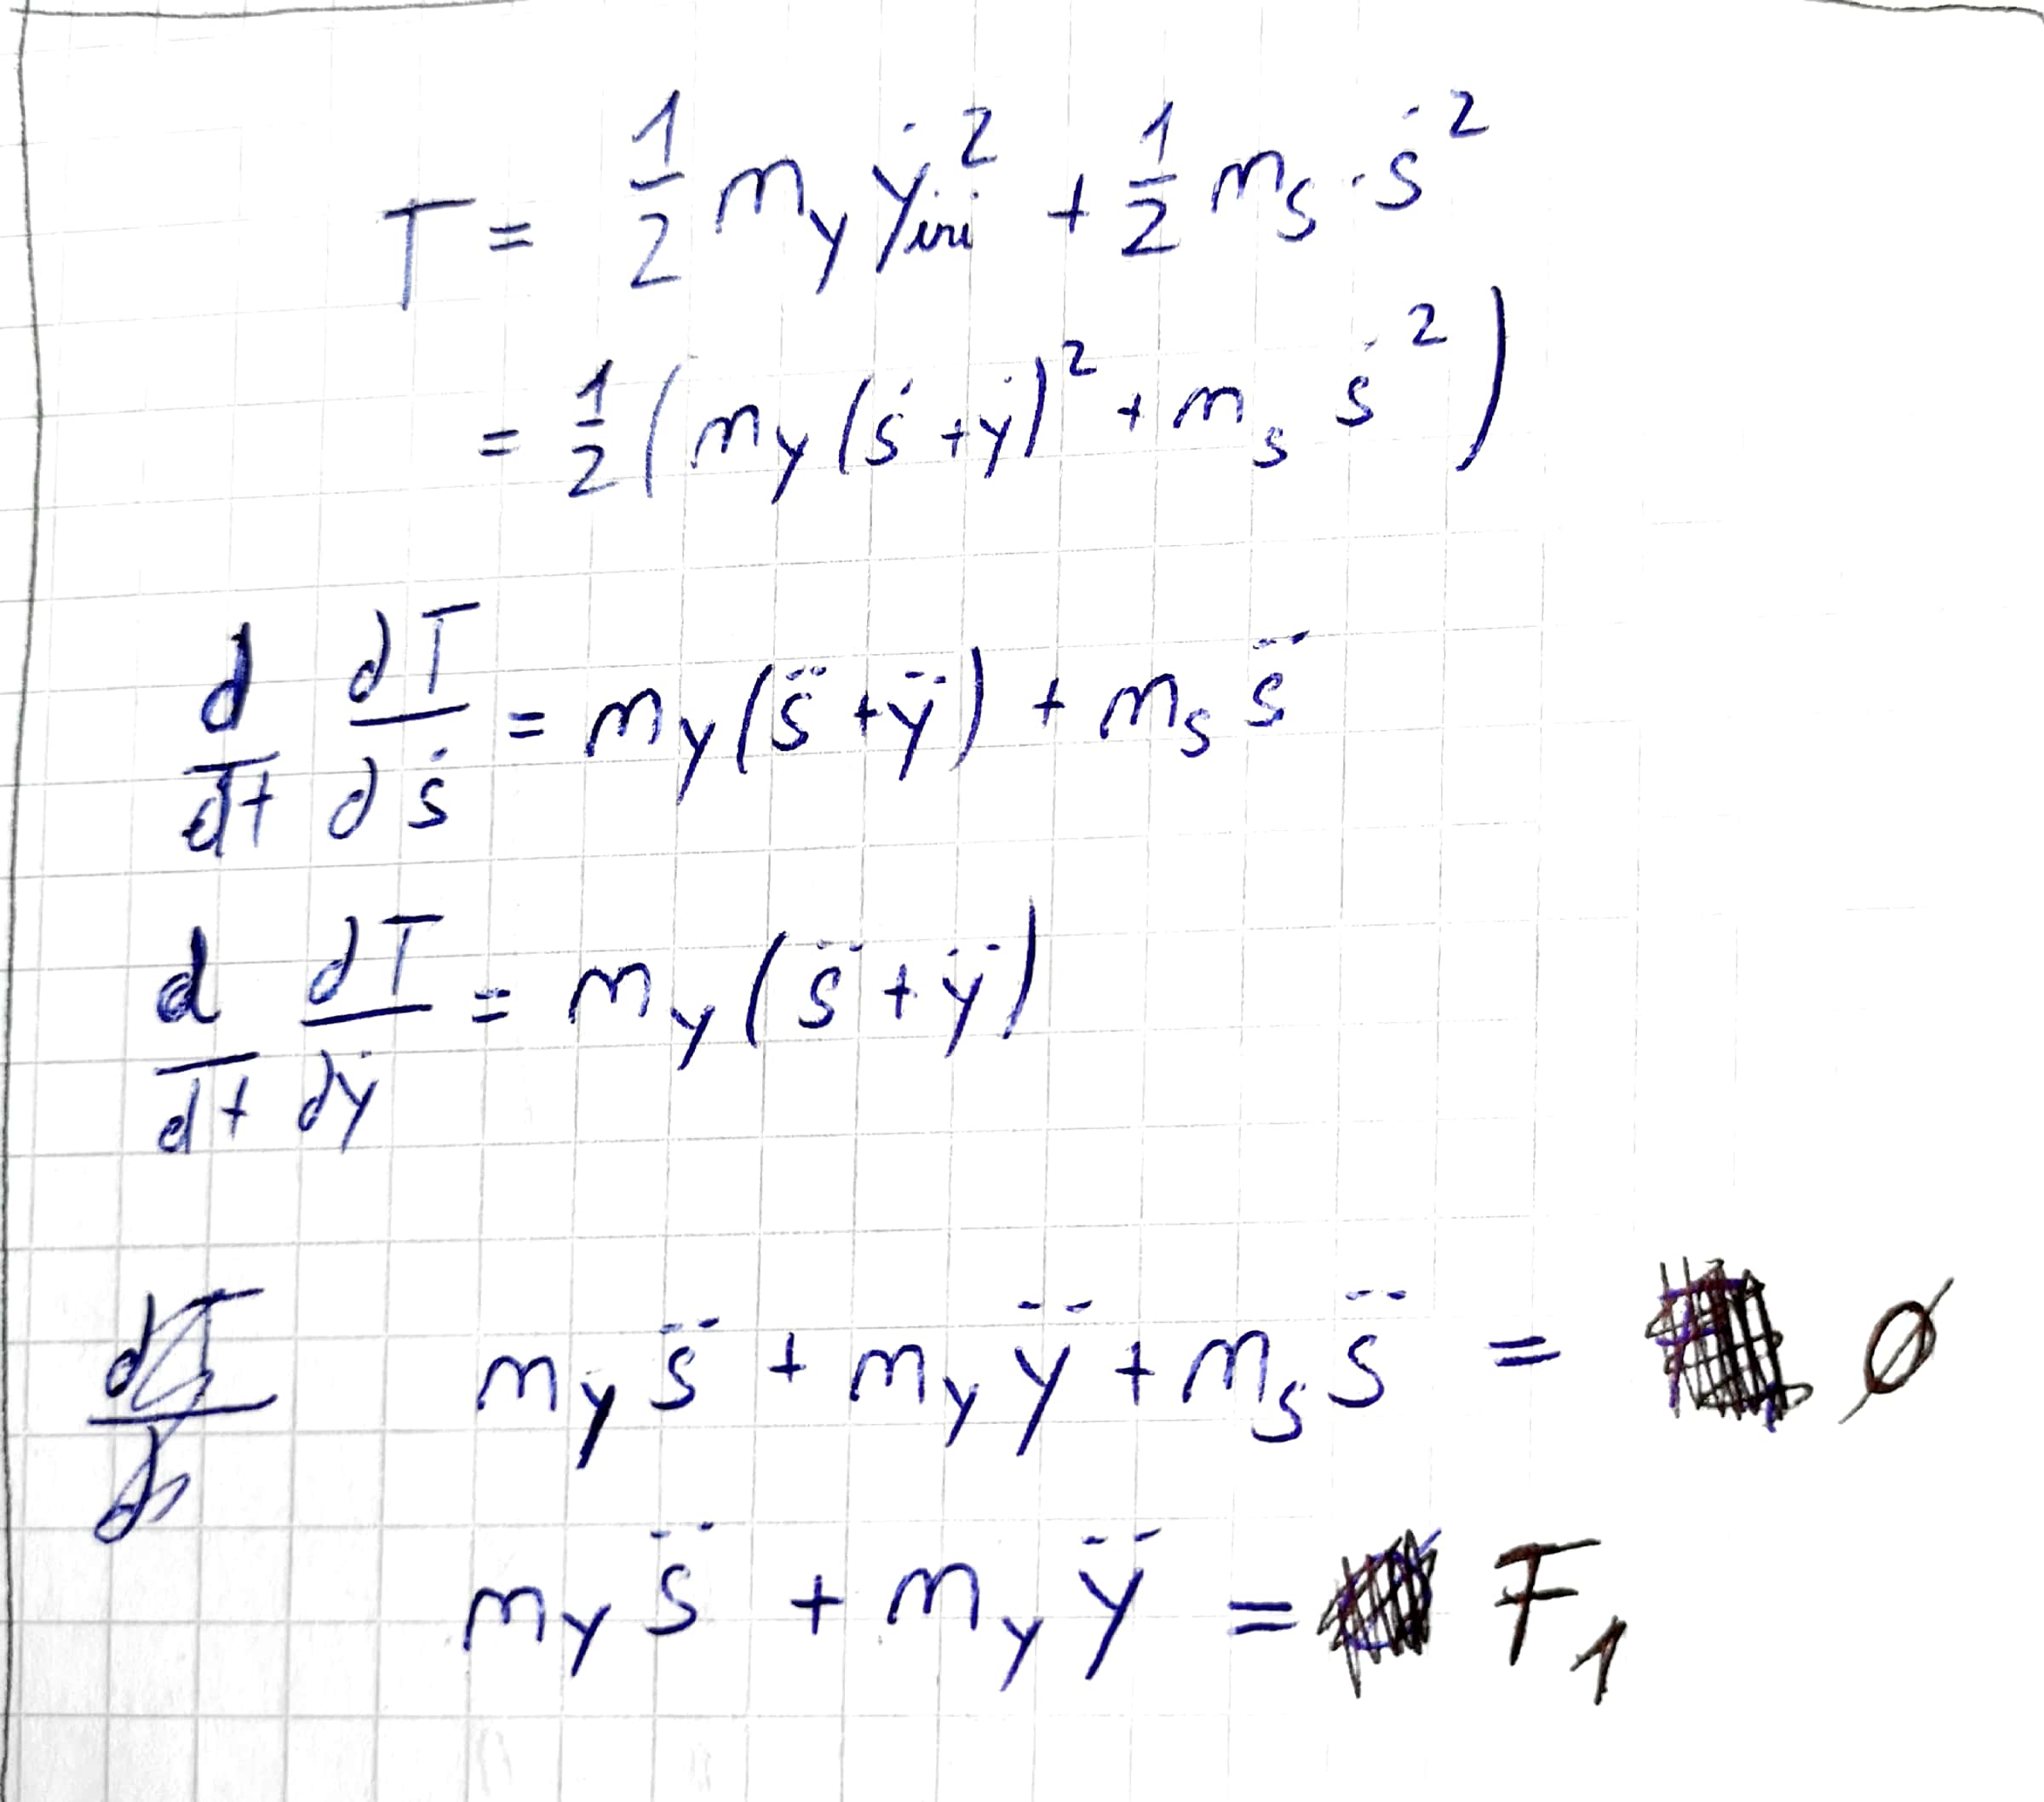 T = 1/2 m_y ẏ_ini² + 1/2 m_s · ṡ²
= 1/2 ( m_y (ṡ + ẏ)² + m_s ṡ² )
d/dt ∂T/∂ṡ = m_y (s̈ + ÿ) + m_s s̈
d/dt ∂T/∂ẏ = m_y (s̈ + ÿ)
m_y s̈ + m_y ÿ + m_s s̈ = ∅
m_y s̈ + m_y ÿ = F₁